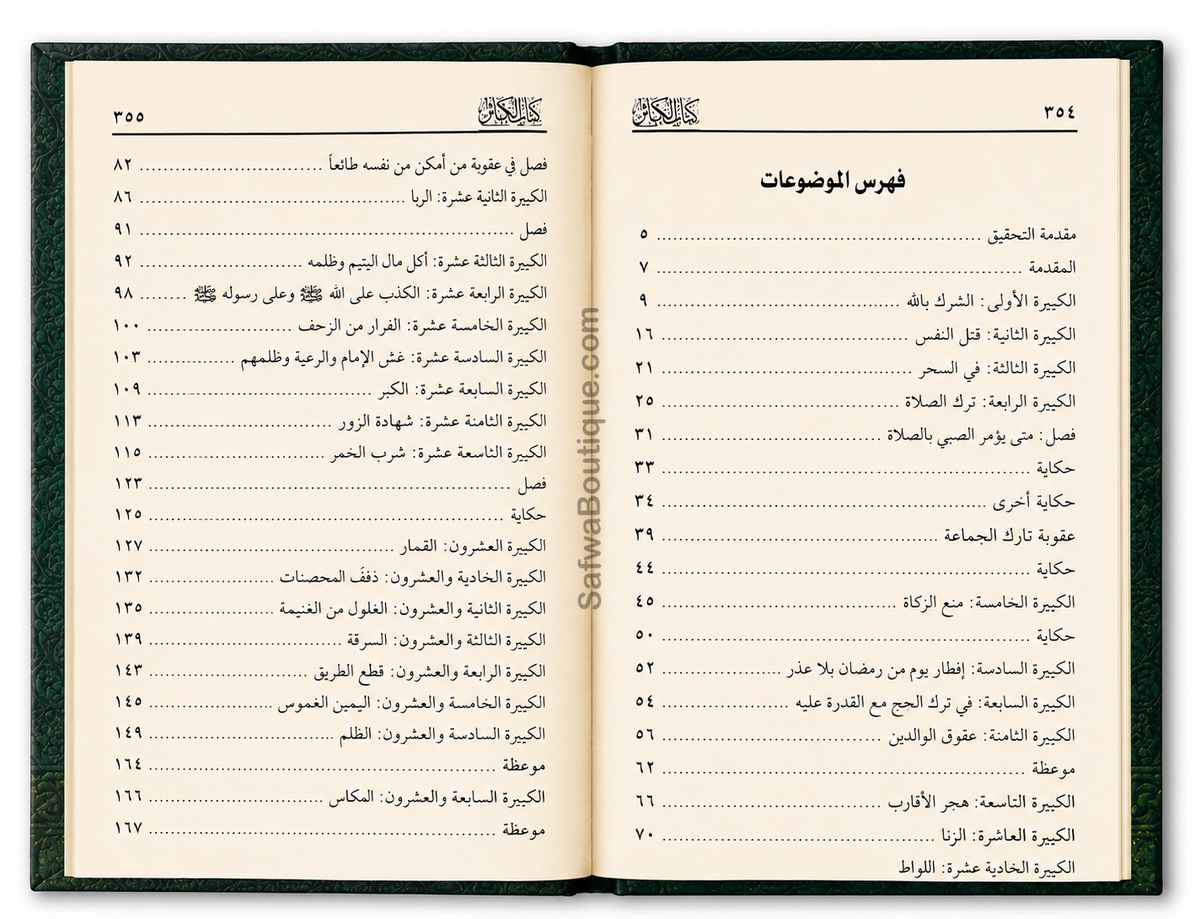 ٣٥٤
كتاب الكبائر
فهرس الموضوعات
مقدمة التحقيق ........ ٥
المقدمة ........ ٧
الكبيرة الأولى: الشرك بالله ........ ٩
الكبيرة الثانية: قتل النفس ........ ١٦
الكبيرة الثالثة: في السحر ........ ٢١
الكبيرة الرابعة: ترك الصلاة ........ ٢٥
فصل: متى يؤمر الصبي بالصلاة ........ ٣١
حكاية ........ ٣٣
حكاية أخرى ........ ٣٤
عقوبة تارك الجماعة ........ ٣٩
حكاية ........ ٤٤
الكبيرة الخامسة: منع الزكاة ........ ٤٥
حكاية ........ ٥٠
الكبيرة السادسة: إفطار يوم من رمضان بلا عذر ........ ٥٢
الكبيرة السابعة: في ترك الحج مع القدرة عليه ........ ٥٤
الكبيرة الثامنة: عقوق الوالدين ........ ٥٦
موعظة ........ ٦٢
الكبيرة التاسعة: هجر الأقارب ........ ٦٦
الكبيرة العاشرة: الزنا ........ ٧٠
الكبيرة الخادية عشرة: اللواط
كتاب الكبائر
٣٥٥
فصل في عقوبة من أمكن من نفسه طائعاً ........ ٨٢
الكبيرة الثانية عشرة: الربا ........ ٨٦
فصل ........ ٩١
الكبيرة الثالثة عشرة: أكل مال اليتيم وظلمه ........ ٩٢
الكبيرة الرابعة عشرة: الكذب على الله ﷺ وعلى رسوله ﷺ ........ ٩٨
الكبيرة الخامسة عشرة: الفرار من الزحف ........ ١٠٠
الكبيرة السادسة عشرة: غش الإمام والرعية وظلمهم ........ ١٠٣
الكبيرة السابعة عشرة: الكبر ........ ١٠٩
الكبيرة الثامنة عشرة: شهادة الزور ........ ١١٣
الكبيرة الثاسعة عشرة: شرب الخمر ........ ١١٥
فصل ........ ١٢٣
حكاية ........ ١٢٥
الكبيرة العشرون: القمار ........ ١٢٧
الكبيرة الخادية والعشرون: ذففَ المحصنات ........ ١٣٢
الكبيرة الثانية والعشرون: الغلول من الغنيمة ........ ١٣٥
الكبيرة الثالثة والعشرون: السرقة ........ ١٣٩
الكبيرة الرابعة والعشرون: قطع الطريق ........ ١٤٣
الكبيرة الخامسة والعشرون: اليمين الغموس ........ ١٤٥
الكبيرة السادسة والعشرون: الظلم ........ ١٤٩
موعظة ........ ١٦٤
الكبيرة السابعة والعشرون: المكاس ........ ١٦٦
موعظة ........ ١٦٧
SafwaBoutique.com